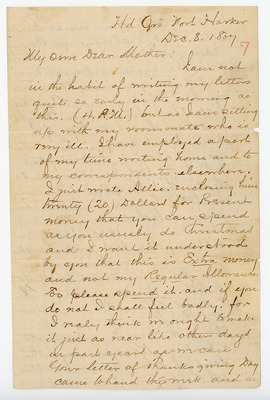 Hd Qrs Fort Harker
Dec. 8. 1867
My own Dear Mother
I am not
in the habit of writing my letters
quite so early in the morning as
this. (4. A.M.) but as I am sitting
up with my room mate who is
very ill. I have employed a part
of my time writing home and to
my correspondents elsewhere.
I just wrote Allie. enclosing him
twenty (20) Dollars for Present
money that you can spend
as you usually do Christmas.
and I want it understood
by you that this is Extra money
and not my Regular Allowance.
So please spend it. and if you
do not I shall feel badly. for
I realy think we ought to make
it just as near like other days
in past years as we can.
Your letter of thanksgiving Day
came to hand this week. and in